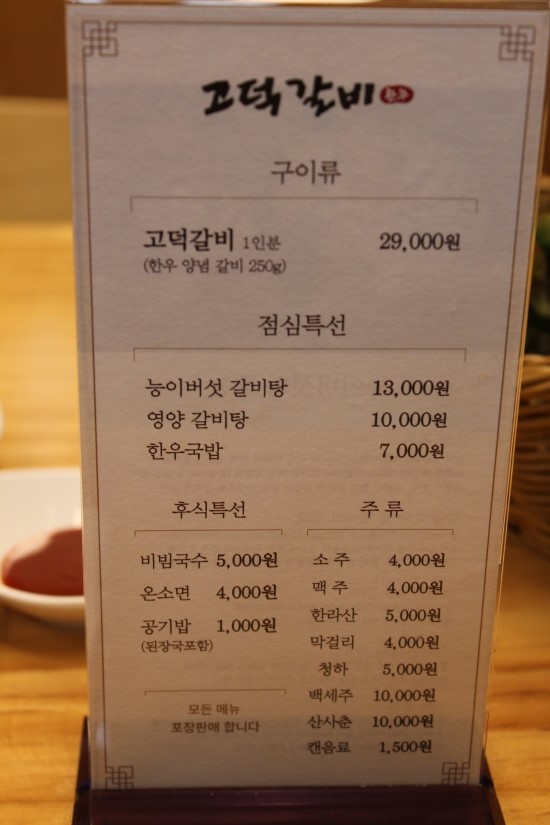 고덕갈비
구이류
고덕갈비 1인분 29,000원
(한우 양념 갈비 250g)
점심특선
능이버섯 갈비탕 13,000원
영양 갈비탕 10,000원
한우국밥 7,000원
후식특선
비빔국수 5,000원
온소면 4,000원
공기밥 1,000원
(된장국포함)
모든 메뉴
포장판매 합니다
주 류
소 주 4,000원
맥 주 4,000원
한라산 5,000원
막걸리 4,000원
청하 5,000원
백세주 10,000원
산사춘 10,000원
캔음료 1,500원